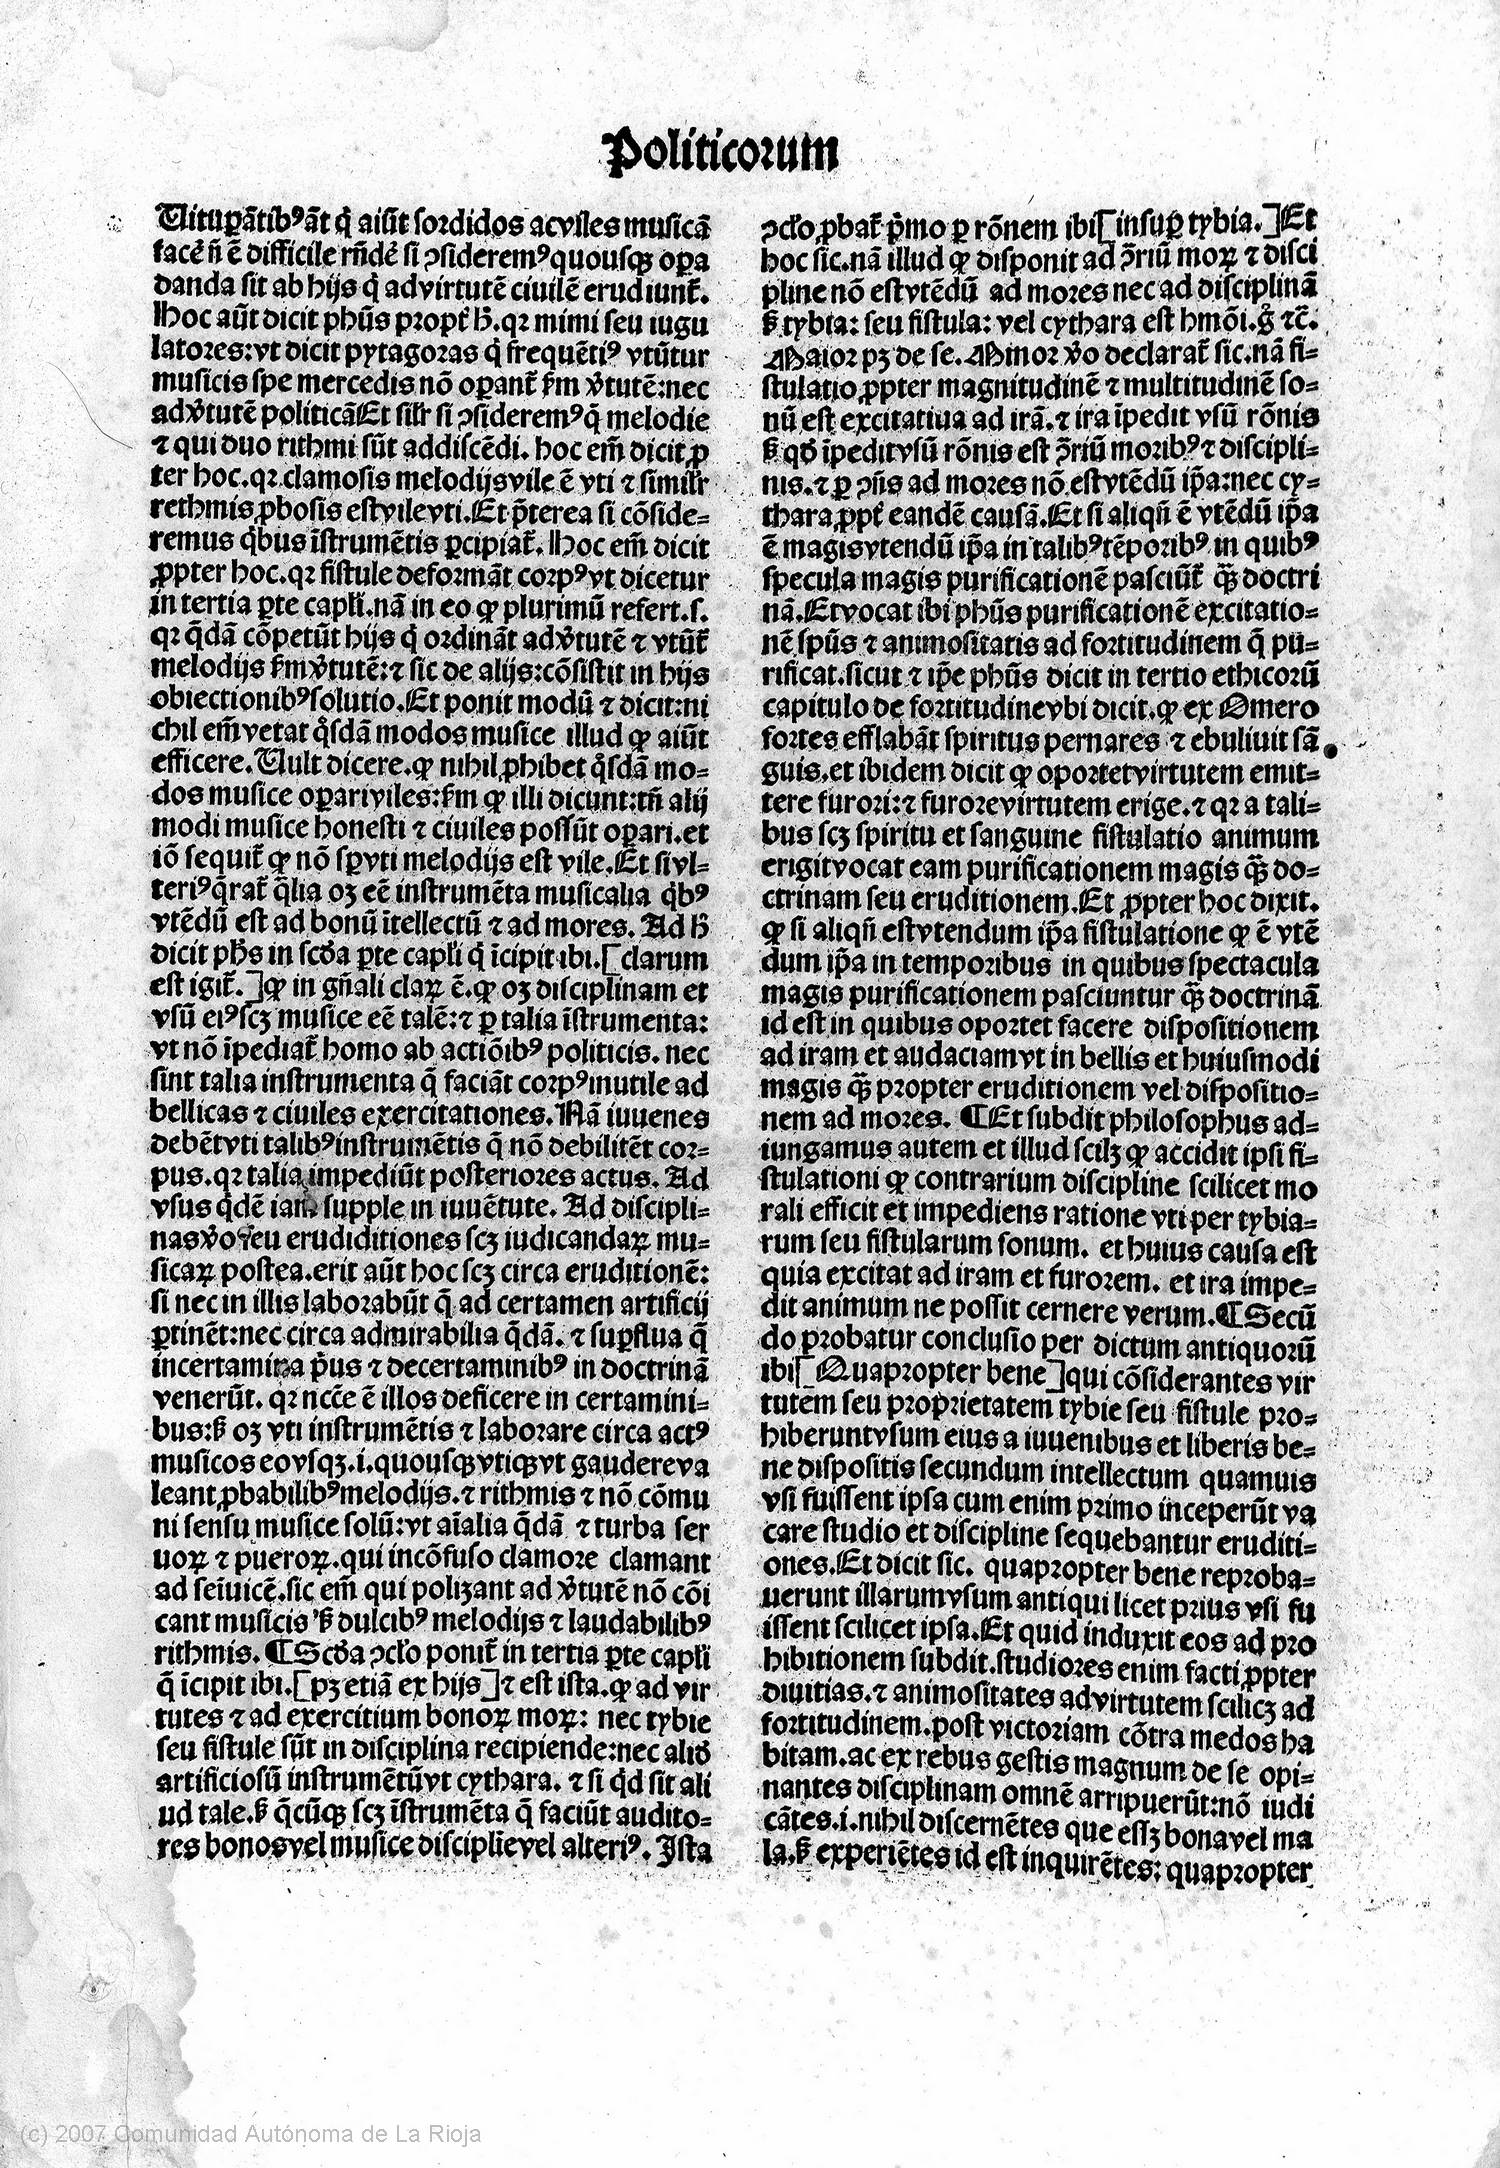 Politicorum
Uituꝑãtibꝰ ãt q̇ aiũt sordidos ac viles musicã
facẽ ñ ẽ difficile rñdẽ si ꝯsideremꝰ quousqꝫ oꝑa
danda sit ab hijs q̇ ad virtutẽ ciuilẽ erudiunt̃.
Hoc aũt dicit phũs propt̃ h̃. qꝛ mimi seu iugu
latores: vt dicit pytagoras q̇ frequẽtiꝰ vtũtur
musicis spe mercedis nõ oꝑant̃ ẜm v̾tutẽ: nec
ad v̾tutẽ politicã Et silr̃ si ꝯsideremꝰ q̃ melodie
⁊ qui duo rithmi sũt addiscẽdi. hoc em̃ dicit ꝓ
ter hoc. qꝛ clamosis melodijs vile ẽ vti ⁊ similr̃
rethmis ꝓbosis est vile vti. Et p̃terea si cõside=
remus q̇bus ĩstrumẽtis ꝑcipiat̃. Hoc em̃ dicit
ꝓpter hoc. qꝛ fistule deformãt corpꝰ vt dicetur
in tertia ꝑte capl̃i. nã in eo ꝙ plurimũ refert. ſ.
qꝛ q̃dã cõpetũt hijs q̇ ordinãt ad v̾tutẽ ⁊ vtũt̃
melodijs ẜm v̾tutẽ: ⁊ sic de alijs: cõsistit in hijs
obiectionibꝰ solutio. Et ponit modũ ⁊ dicit: ni
chil em̃ vetat q̇sdã modos musice illud ꝙ aiũt
efficere. Uult dicere. ꝙ nihil ꝓhibet q̇sdã mo=
dos musice oꝑari viles: ẜm ꝙ illi dicunt: tñ alij
modi musice honesti ⁊ ciuiles possũt oꝑari. et
iõ sequit̃ ꝙ nõ sꝑ vti melodijs est vile. Et si vl=
teriꝰ q̃rat̃ q̃lia oꝫ eẽ instrumẽta musicalia q̇bꝰ
vtẽdũ est ad bonũ ĩtellectũ ⁊ ad mores. Ad h̃
dicit phs̃ in scd̃a ꝑte capl̃i q̇ ĩcipit ibi. [clarum
est igit̃.] ꝙ in gñali claꝝ ẽ. ꝙ oꝫ disciplinam et
vsũ eiꝰ scꝫ musice eẽ talẽ: ⁊ ꝑ talia ĩstrumenta:
vt nõ ĩpediat̃ homo ab actiõibꝰ politicis. nec
sint talia instrumenta q̃ faciãt corpꝰ inutile ad
bellicas ⁊ ciuiles exercitationes. Nã iuuenes
debẽt vti talibꝰ instrumẽtis q̃ nõ debilitẽt cor=
pus. qꝛ talia impediũt posteriores actus. Ad
vsus q̇dẽ iam supple in iuuẽtute. Ad discipli=
nas v̾o seu erudiditiones scꝫ iudicandaꝝ mu=
sicaꝝ postea. erit aũt hoc scꝫ circa eruditionẽ:
si nec in illis laborabũt q̃ ad certamen artificij
ꝑtinẽt: nec circa admirabilia q̃dã. ⁊ suꝑflua q̃
in certamina p̃us ⁊ de certaminibꝰ in doctrinã
venerũt. qꝛ ncc̃e ẽ illos deficere in certamini=
bus: ẜ oꝫ vti instrumẽtis ⁊ laborare circa actꝰ
musicos eo vsqꝫ .i. quousqꝫ vtiqꝫ vt gaudere va
leant ꝓbabilibꝰ melodijs. ⁊ rithmis ⁊ nõ cõmu
ni sensu musice solũ: vt aĩalia q̃dã ⁊ turba ser
uoꝝ ⁊ pueroꝝ. qui in cõfuso clamore clamant
ad seĩuicẽ. sic em̃ qui polizant ad v̾tutẽ nõ cõi
cant musicis ẜ dulcibꝰ melodijs ⁊ laudabilibꝰ
rithmis. ¶ Scd̃a ꝯcl̃o ponit̃ in tertia ꝑte capl̃i
q̃ ĩcipit ibi. [pꝫ etiã ex hijs] ⁊ est ista. ꝙ ad vir
tutes ⁊ ad exercitium bonoꝝ moꝝ: nec tybie
seu fistule sũt in disciplina recipiende: nec aliđ
artificiosũ instrumẽtũ vt cythara. ⁊ si q̇d sit ali
ud tale. ẜ q̃cũqꝫ scꝫ ĩstrumẽta q̃ faciũt audito=
res bonos vel musice discipliẽ vel alteriꝰ. Ista
ꝯcl̃o ꝓbat̃ p̃mo ꝑ rõnem ibi [insuꝑ tybia.] Et
hoc sic. nã illud ꝙ disponit ad ꝯ̃riũ moꝝ ⁊ disci
pline nõ est vtẽdũ ad mores nec ad disciplinã
ẜ tybia: seu fistula: vel cythara est hmõi. g̊ ⁊c̃.
Maior pꝫ de se. Minor v̾o declarat̃ sic. nã fi=
stulatio ꝓpter magnitudinẽ ⁊ multitudinẽ so=
nũ est excitatiua ad irã. ⁊ ira ĩpedit vsũ rõnis
ẜ qđ ĩpedit vsũ rõnis est ꝯ̃riũ moribꝰ ⁊ discipli=
nis. ⁊ ꝑ ꝯñs ad mores nõ est vtẽdũ ip̃a: nec cy=
thara ꝓpt̃ eandẽ causã. Et si aliqñ ẽ vtẽdũ ip̃a
ẽ magis vtendũ ip̃a in talibꝰ tẽporibꝰ in quibꝰ
specula magis purificationẽ pasciũt̃ qꝫ̃ doctri
nã. Et vocat ibi phũs purificationẽ excitatio=
nẽ spũs ⁊ animositatis ad fortitudinem q̃ pu=
rificat. sicut ⁊ ip̃e phũs dicit in tertio ethicorũ
capitulo de fortitudine vbi dicit. ꝙ ex Omero
fortes efflabãt spiritus per nares ⁊ ebuliuit sã
guis. et ibidem dicit ꝙ oportet virtutem emit=
tere furori: ⁊ furore virtutem erige. ⁊ qꝛ a tali=
bus scꝫ spiritu et sanguine fistulatio animum
erigit vocat eam purificationem magis qꝫ̃ do=
ctrinam seu eruditionem. Et ꝓpter hoc dixit.
ꝙ si aliqñ est vtendum ip̃a fistulatione ꝙ ẽ vtẽ
dum ip̃a in temporibus in quibus spectacula
magis purificationem pasciuntur qꝫ̃ doctrinã
id est in quibus oportet facere dispositionem
ad iram et audaciam vt in bellis et huiusmodi
magis qꝫ̃ propter eruditionem vel dispositio=
nem ad mores. ¶ Et subdit philosophus ad=
iungamus autem et illud scilꝫ ꝙ accidit ipsi fi=
stulationi ꝙ contrarium discipline scilicet mo
rali efficit et impediens ratione vti per tybia=
rum seu fistularum sonum. et huius causa est
quia excitat ad iram et furorem. et ira impe=
dit animum ne possit cernere verum. ¶ Secũ
do probatur conclusio per dictum antiquorũ
ibi [Quapropter bene] qui cõsiderantes vir
tutem seu proprietatem tybie seu fistule pro=
hiberunt vsum eius a iuuenibus et liberis be=
ne dispositis secundum intellectum quamuis
vsi fuissent ipsa cum enim primo inceperũt va
care studio et discipline sequebantur eruditi=
ones. Et dicit sic. quapropter bene reproba=
uerunt illarum vsum antiqui licet prius vsi fu
issent scilicet ipsa. Et quid induxit eos ad pro
hibitionem subdit. studiores enim facti ꝓpter
diuitias. ⁊ animositates ad virtutem scilicꝫ ad
fortitudinem. post victoriam cõtra medos ha
bitam. ac ex rebus gestis magnum de se opi=
nantes disciplinam omnẽ arripuerũt: nõ iudi
cãtes .i. nihil discernẽtes que essꝫ bona vel ma
la. ẜ experiẽtes id est inquirẽtes: quapropter
(c) 2007 Comunidad Autónoma de La Rioja